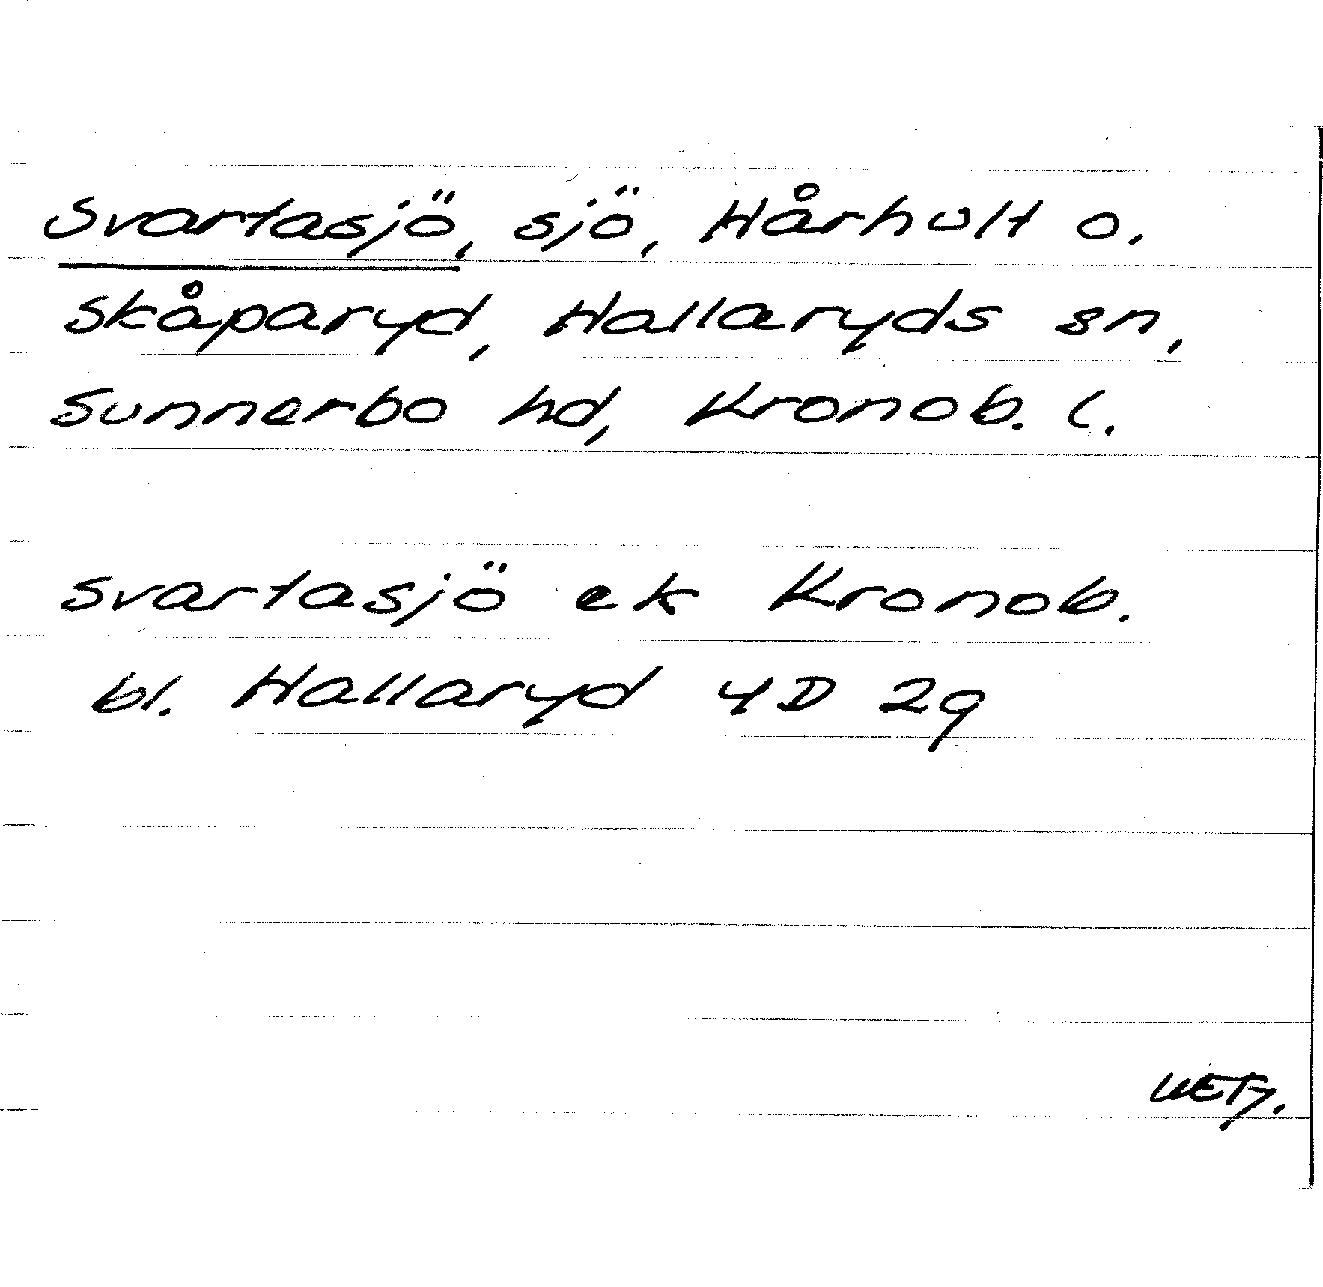 Svartasjö, sjö, Hårhult o.
Skåparyd, Hallaryds sn,
Sunnerbo hd, Kronob. l.
Svartasjö ek Kronob.
bl. Hallaryd 4D 2g